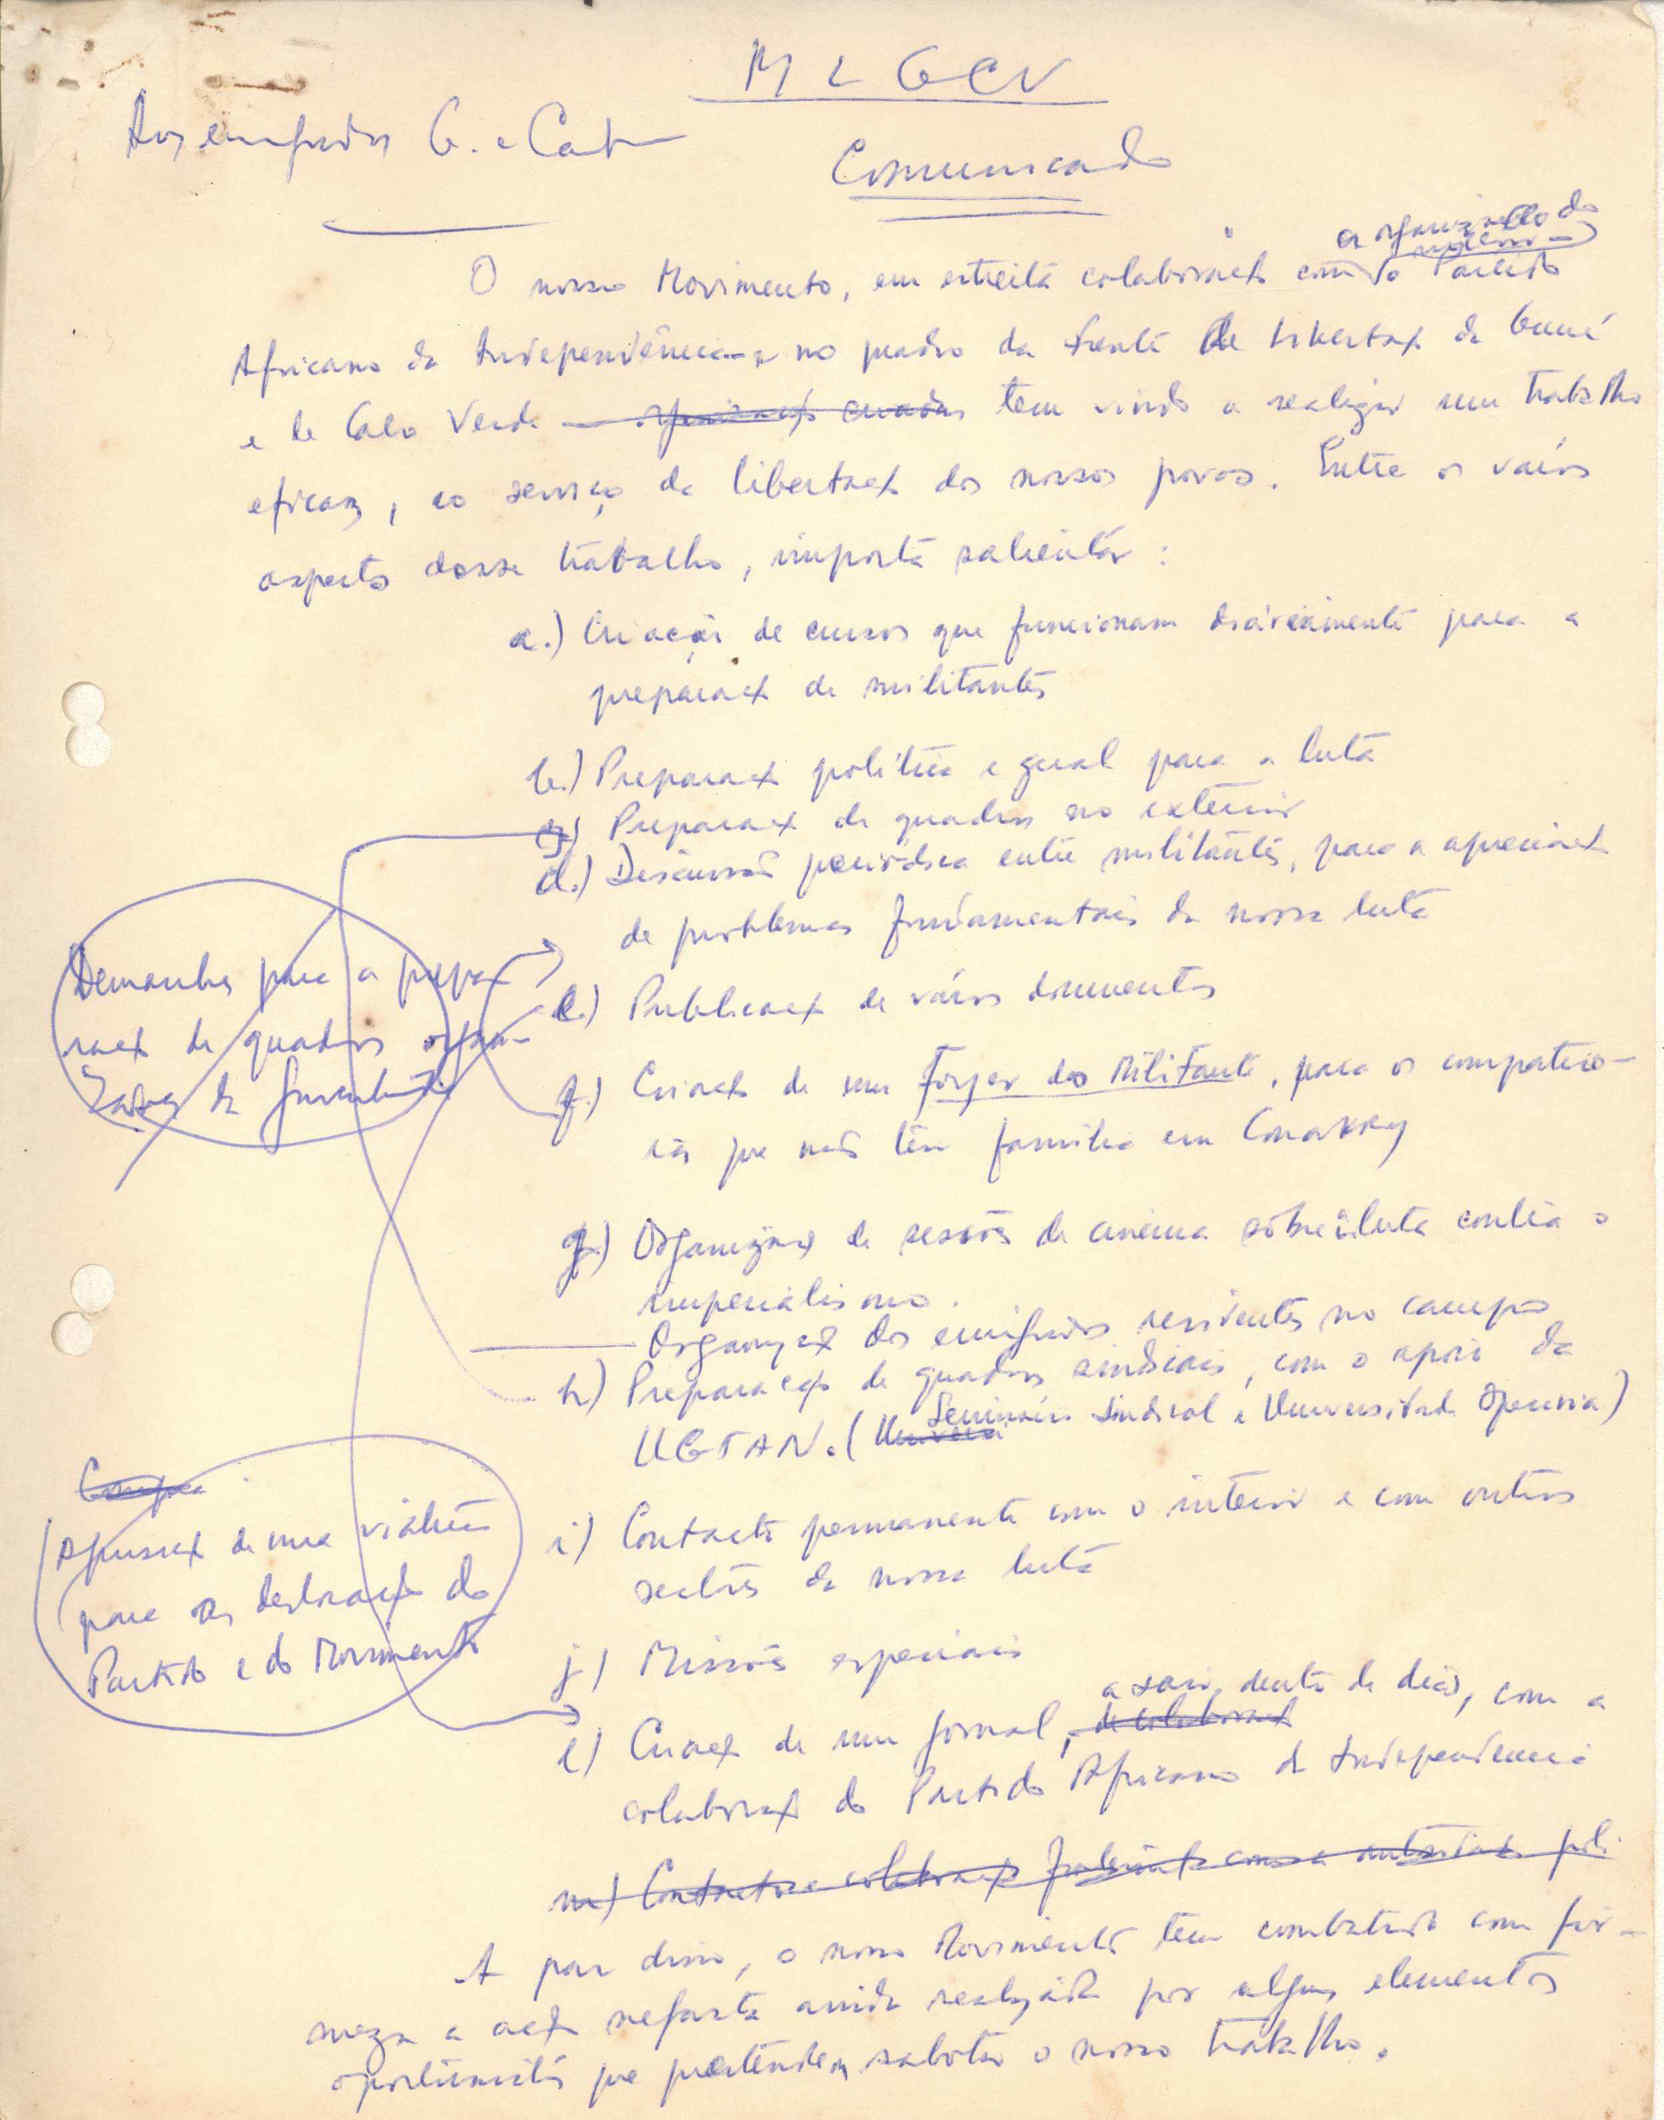 M L G C V
Aos emigrados G. e Cab
Comunicado
a organização do
O nosso Movimento, em estreita colaboração com o Partido
Africano da Independência e no quadro da Frente de Libertação da Guiné
e de Cabo Verde — organização criadas tem vindo a realizar um trabalho
eficaz, ao serviço da libertação dos nossos povos. Entre os vários
aspectos desse trabalho, importa salientar:
a.) Criação de cursos que funcionam diàriamente para a
preparação de militantes
b.) Preparação política e geral para a luta
c) Preparação de quadros no exterior
d.) Discussão periódica entre militantes, para a apreciação
de problemas fundamentais da nossa luta
Demarches para a prepa-
ração de quadros organi-
zados da Juventude
e.) Publicação de vários documentos
f.) Criação de um Foyer do Militante, para os compatrio-
tas que não têm família em Conakry
g.) Organização de sessões de cinema sôbre a luta contra o
imperialismo.
Organização dos emigrados residentes no campo
h) Preparação de quadros sindicais, com o apoio da
UGTAN. (Univers Seminário Sindical e Universidade Operária)
i) Contacto permanente com o interior e com outros
sectores da nossa luta
Compra
Aquisição de uma viatura
para as deslocações do
Partido e do Movimento
j) Missões especiais
l) Criação de um jornal, de colaboração a sair dentro de dias, com a
colaboração do Partido Africano da Independência
m) Contactos e colaboração com autoridades polí
A par disso, o nosso Movimento tem combatido com fir-
meza a acção nefasta ainda realizada por alguns elementos
oportunistas que pretendem sabotar o nosso trabalho.